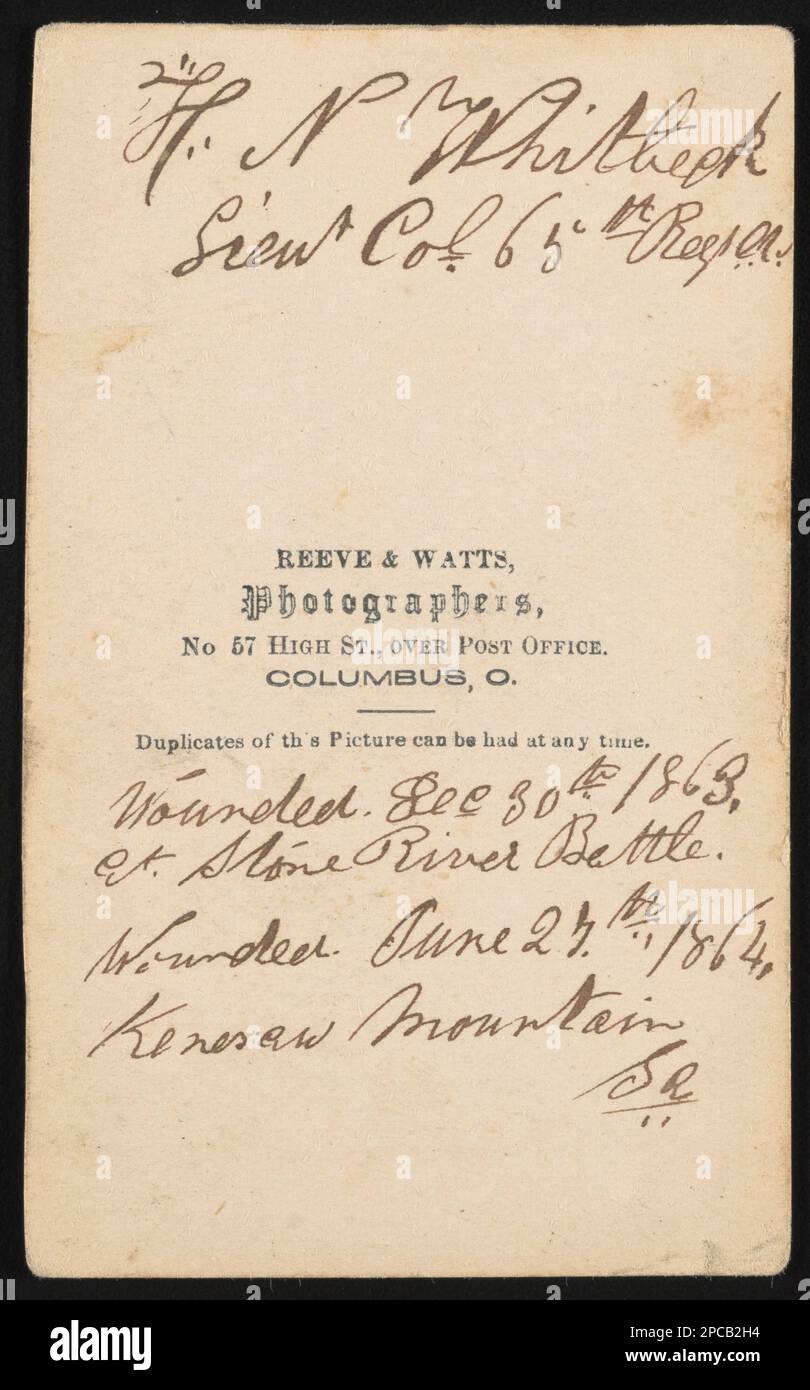 H. N Whitbeck
Lieut Col. 65th Regt
REEVE & WATTS,
Photographers,
No 57 HIGH ST., OVER POST OFFICE.
COLUMBUS, O.
Duplicates of th's Picture can be had at any time.
Wounded. Dec 30th 1863.
at. Stone River Battle.
Wounded. June 27.th 1864.
Kenesaw Mountain
Ga
alamy
Image ID: 2PCB2H4
www.alamy.com